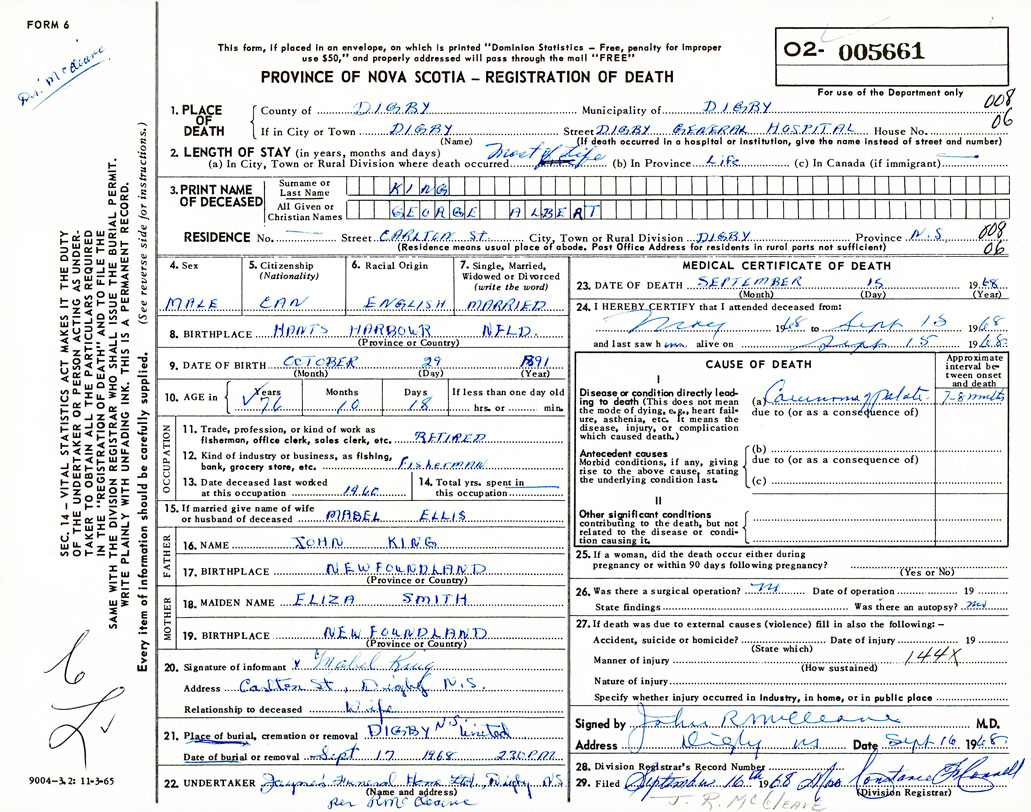 FORM 6
Dr. McCleave
This form, if placed in an envelope, on which is printed "Dominion Statistics – Free, penalty for improper
use $50," and properly addressed will pass through the mail "FREE"
PROVINCE OF NOVA SCOTIA – REGISTRATION OF DEATH
O2- 005661
For use of the Department only
008
06
1. PLACE OF DEATH County of DIGBY Municipality of DIGBY
If in City or Town DIGBY Street DIGBY GENERAL HOSPITAL House No.
(Name) (If death occurred in a hospital or institution, give the name instead of street and number)
2. LENGTH OF STAY (in years, months and days)
(a) In City, Town or Rural Division where death occurred Most of Life (b) In Province Life (c) In Canada (if immigrant)
3. PRINT NAME OF DECEASED
Surname or Last Name KING
All Given or Christian Names GEORGE ALBERT
RESIDENCE No. Street CARLTON ST. City, Town or Rural Division DIGBY Province N.S. 008
(Residence means usual place of abode. Post Office Address for residents in rural parts not sufficient) 06
4. Sex MALE
5. Citizenship (Nationality) CAN
6. Racial Origin ENGLISH
7. Single, Married, Widowed or Divorced (write the word) MARRIED
8. BIRTHPLACE HANTS HARBOUR NFLD.
(Province or Country)
9. DATE OF BIRTH OCTOBER 29 1891
(Month) (Day) (Year)
10. AGE in Years 76 Months 10 Days 18 If less than one day old
hrs. or min.
OCCUPATION
11. Trade, profession, or kind of work as
fisherman, office clerk, sales clerk, etc. RETIRED
12. Kind of industry or business, as fishing,
bank, grocery store, etc. Fisherman
13. Date deceased last worked
at this occupation 1960
14. Total yrs. spent in
this occupation
15. If married give name of wife
or husband of deceased MABEL ELLIS
FATHER
16. NAME JOHN KING
17. BIRTHPLACE NEWFOUNDLAND
(Province or Country)
MOTHER
18. MAIDEN NAME ELIZA SMITH
19. BIRTHPLACE NEWFOUNDLAND
(Province or Country)
20. Signature of informant x Mabel King
Address Carlton St, Digby N.S.
Relationship to deceased Wife
21. Place of burial, cremation or removal DIGBY N.S. United
Date of burial or removal Sept 17 1968 2 30 P.M.
22. UNDERTAKER Jayne's Funeral Home Ltd, Digby N.S
(Name and address)
per RMcCleave
MEDICAL CERTIFICATE OF DEATH
23. DATE OF DEATH SEPTEMBER 15 1968
(Month) (Day) (Year)
24. I HEREBY CERTIFY that I attended deceased from:
May 1968 to Sept 15 1968
and last saw him alive on Sept 15 1968.
CAUSE OF DEATH
Approximate interval between onset and death
I
Disease or condition directly leading to death (This does not mean
the mode of dying, e.g., heart failure, asthenia, etc. It means the
disease, injury, or complication
which caused death.)
(a) Carcinoma of palate 7-8 months
due to (or as a consequence of)
Antecedent causes
Morbid conditions, if any, giving
rise to the above cause, stating
the underlying condition last.
(b)
due to (or as a consequence of)
(c)
II
Other significant conditions
contributing to the death, but not
related to the disease or condition causing it.
25. If a woman, did the death occur either during
pregnancy or within 90 days following pregnancy?
(Yes or No)
26. Was there a surgical operation? no Date of operation 19
State findings Was there an autopsy? no
27. If death was due to external causes (violence) fill in also the following: –
Accident, suicide or homicide? Date of injury 19
(State which)
Manner of injury 144X
(How sustained)
Nature of injury
Specify whether injury occurred in Industry, in home, or in public place
Signed by John R McCleave M.D.
Address Digby NS Date Sept 16 1968
28. Division Registrar's Record Number
29. Filed September 16th 1968 Mrs Constance
(Division Registrar)
J. R. McCLEAVE
SEC. 14 – VITAL STATISTICS ACT MAKES IT THE DUTY
OF THE UNDERTAKER OR PERSON ACTING AS UNDER-
TAKER TO OBTAIN ALL THE PARTICULARS REQUIRED
IN THE "REGISTRATION OF DEATH" AND TO FILE THE
SAME WITH THE DIVISION REGISTRAR WHO SHALL ISSUE THE BURIAL PERMIT.
WRITE PLAINLY WITH UNFADING INK. THIS IS A PERMANENT RECORD.
Every item of information should be carefully supplied. (See reverse side for instructions.)
9004-3.2: 11-3-65